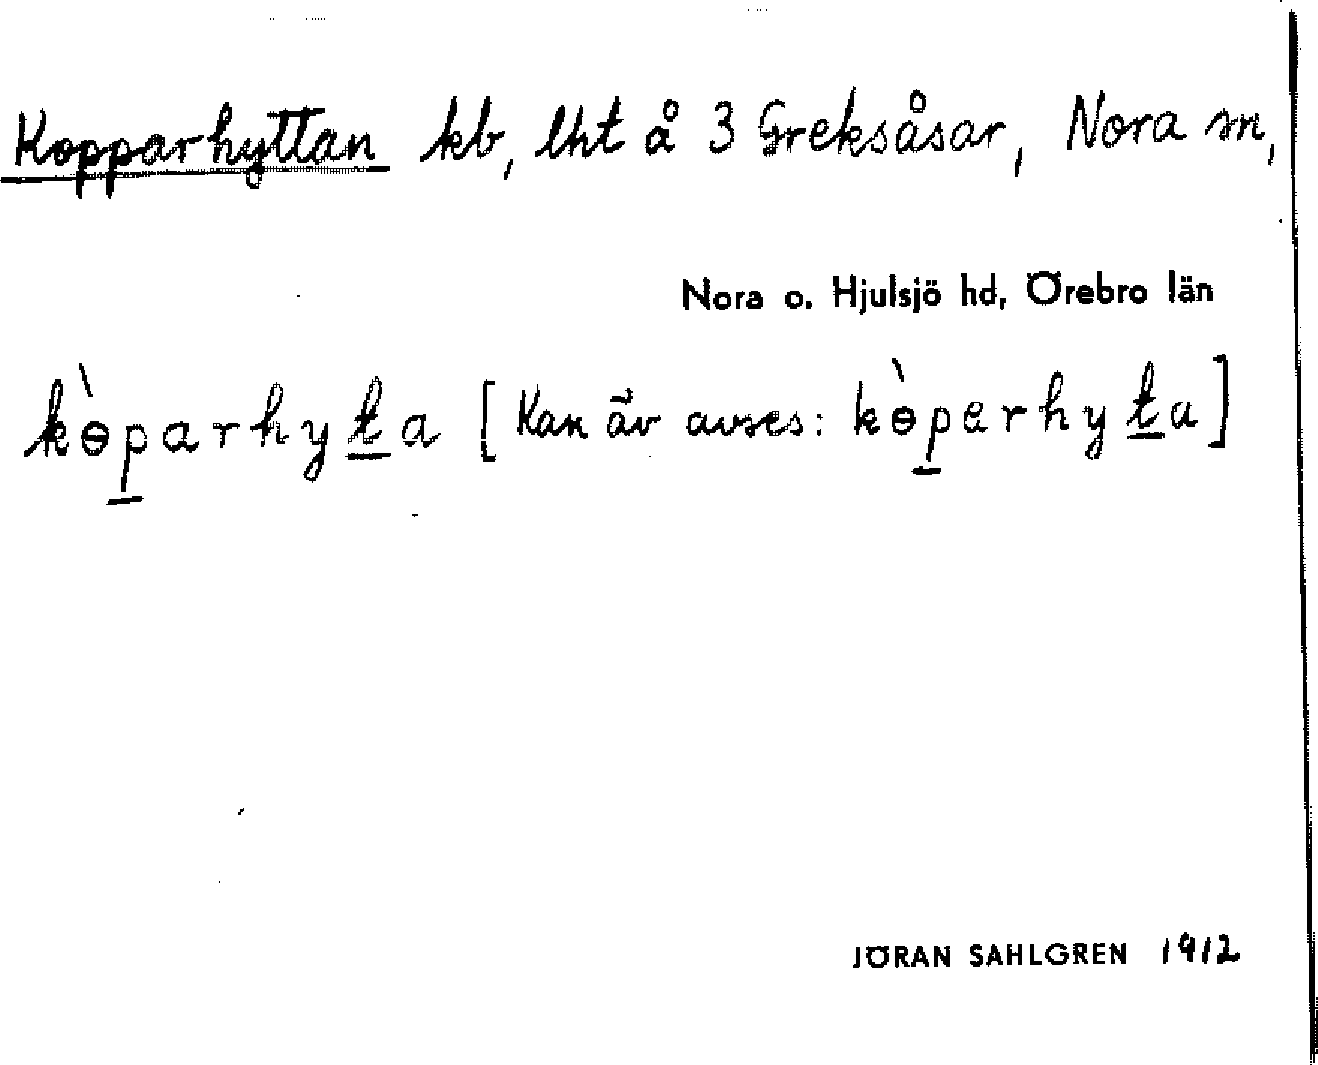 Kopparhyttan kb, lht å 3 Greksåsar, Nora sn,
Nora o. Hjulsjö hd, Örebro län
kɵ̀p̲arhyt̲a [Kan äv avses: kɵ̀p̲erhyt̲a]
JÖRAN SAHLGREN 1912